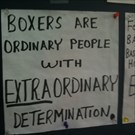 BOXERS ARE
ORDINARY PEOPLE
WITH
EXTRAORDINARY
DETERMINATION.